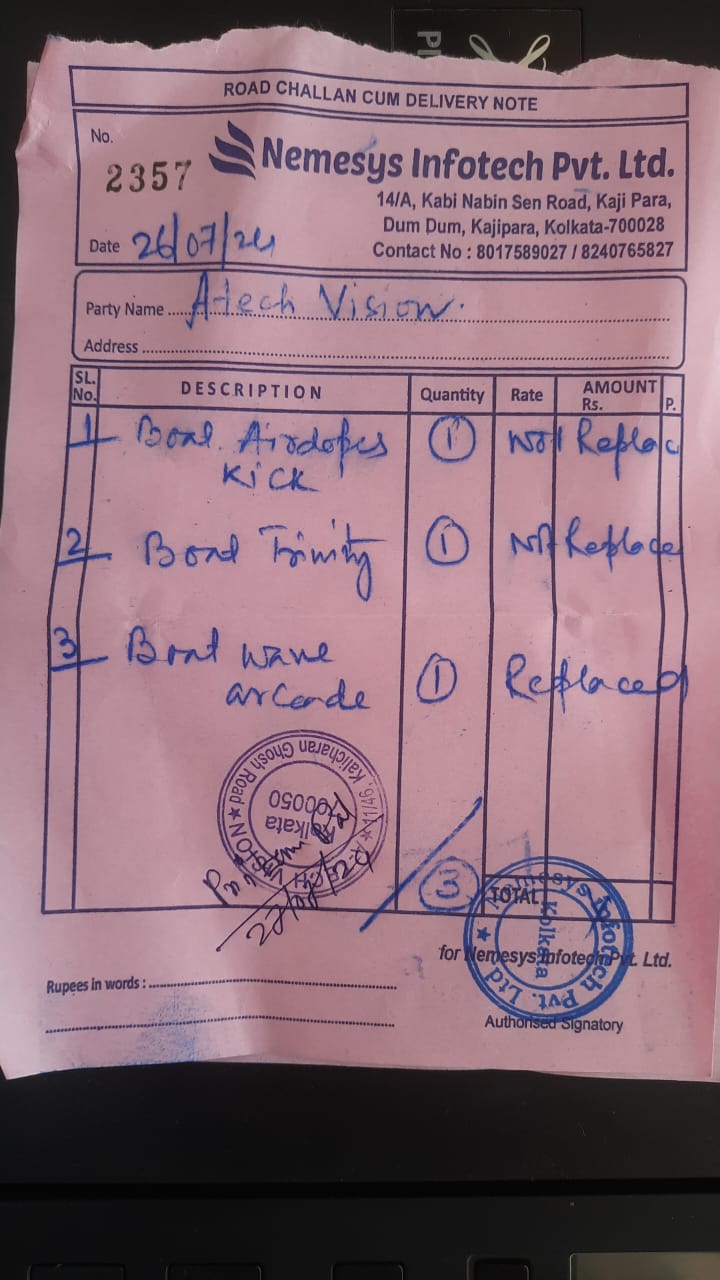 ROAD CHALLAN CUM DELIVERY NOTE
No.
2357
Nemesys Infotech Pvt. Ltd.
14/A, Kabi Nabin Sen Road, Kaji Para,
Dum Dum, Kajipara, Kolkata-700028
Date 26/07/24
Contact No : 8017589027 / 8240765827
Party Name Atech Vision.
Address
SL. No. DESCRIPTION Quantity Rate AMOUNT Rs. P.
1 Boat Airdopes 1 Not Replac
Kick
2 Boat Trinity 1 Not Replace
3 Boat wave
arcade 1 Replaced
11/46, Kalicharan Ghosh Road
Kolkata
VISION
3 TOTAL
Nemesys Infotech Pvt. Ltd
Kolkata
for Nemesys Infotech Pvt. Ltd.
Rupees in words :
Authorised Signatory